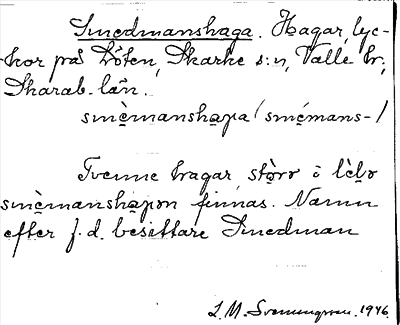 Smedmanshaga. Hagar, lyc-
kor på Löten, Skarke s:n, Valle hr,
Skarab. län.
smèmanshaga (smémans-)
Tvenne hagar, störo o lèbo
smèmanshagon finnas. Namn
efter f.d. besittare Smedman
L. M. Svenungsson. 1946.